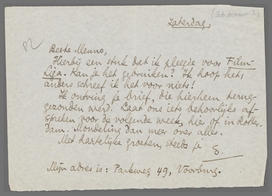 Zaterdag.
Beste Menno,
Hierbij een stuk dat ik pleegde voor Film-
liga. Kan je het gebruiken? Ik hoop het,
anders schreef ik het voor niets!
Ik ontving je brief, die hierheen terug-
gezonden werd. Laat ons iets behoorlijks af-
spreken voor de volgende week, hier of in Rotter-
dam. Mondeling dan meer over alles.
Met hartelijke groeten, steeds je
E.
Mijn adres is: Parkweg 49, Voorburg.